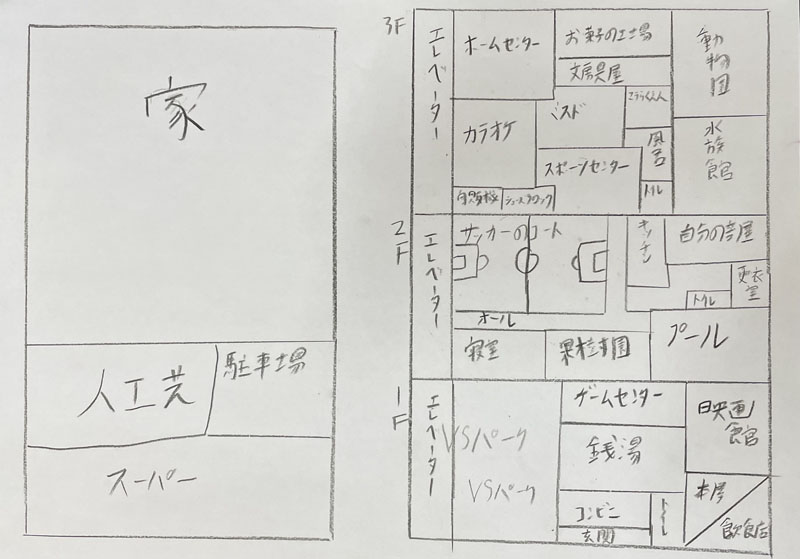 家
人工芝
駐車場
スーパー
3F
エレベーター
ホームセンター
お菓子の工場
文房具屋
動物園
カラオケ
ミスド
風呂
水族館
スポーツセンター
トイレ
自販機
シューズロック
2F
エレベーター
サッカーのコート
キッチン
自分の部屋
更衣室
トイレ
ホール
寝室
果樹園
プール
1F
エレベーター
VSパーク
VSパーク
ゲームセンター
映画館
銭湯
コンビニ
トイレ
本屋
飲食店
玄関